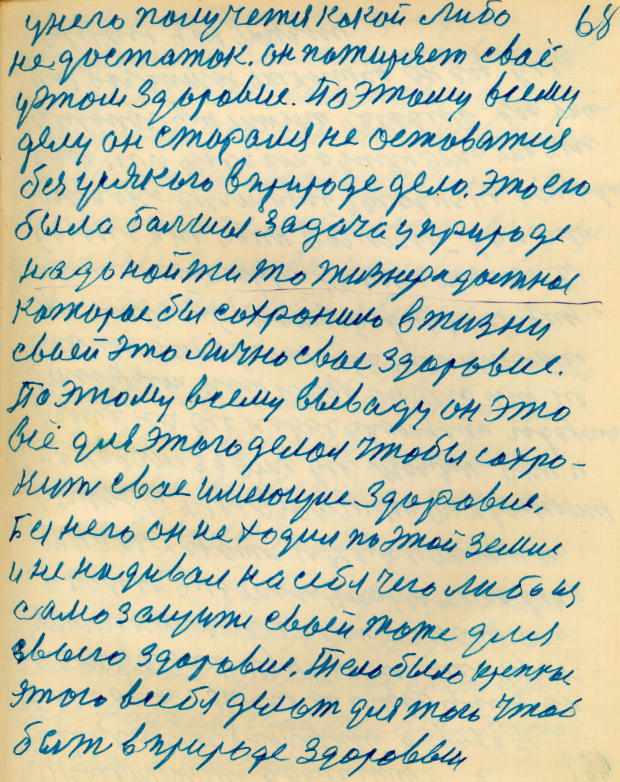 у него получется какой либо 68
недостаток. он потиряет своё
уэтом здоровие. Поэтому всему
делу он старался не оставатия
без усякого вприроде дело. Это его
была балшая задача уприроде
надь найти то жизнерадостное
Которое бы сохранило вжизни
своей это лично свае здоровие.
Поэтому всему вываду он это
всё для этого делал чтобы сохро-
нит свае имеющие здоровие.
Без него он не ходил по этой земле
и не надивал на себя чего либо из
само заслужи своей тоже для
своего здоровие. Тело было крепкае
этого всебя делат для того чтоб
быт вприроде здоровыи